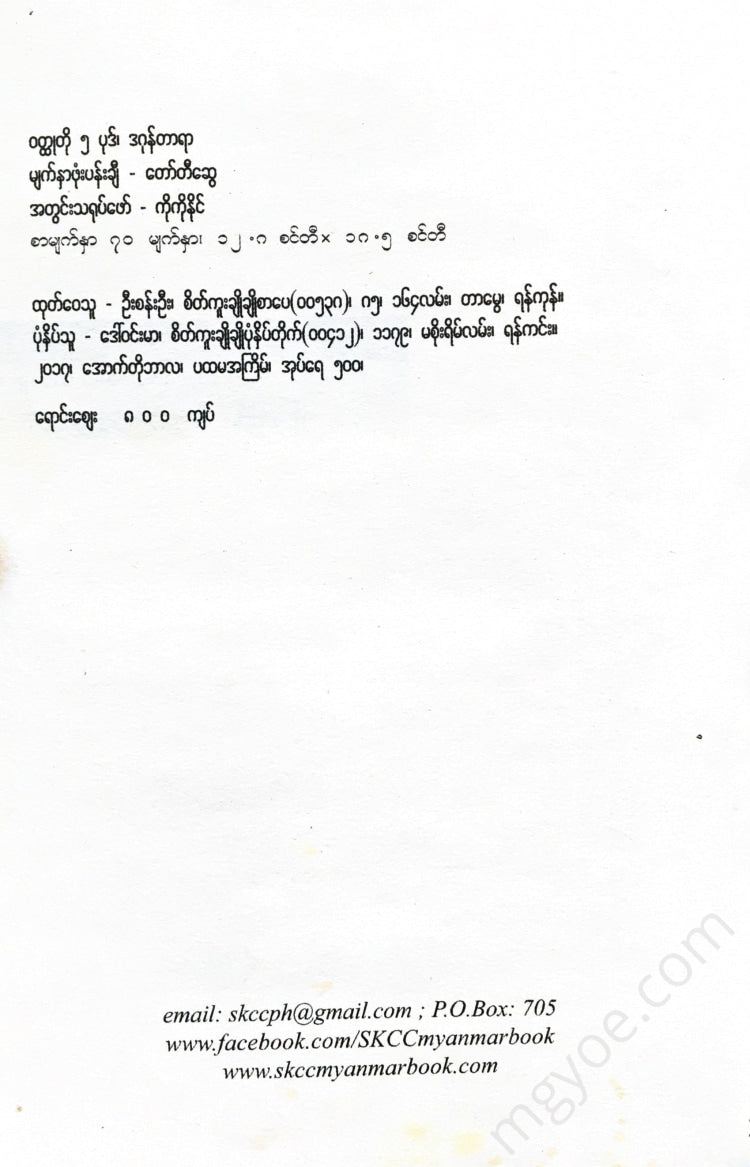 ဝတ္ထုတို ၅ ပုဒ်၊ ဒဂုန်တာရာ
မျက်နှာဖုံးပန်းချီ - တော်တီဆွေ
အတွင်းသရုပ်ဖော် - ကိုကိုနိုင်
စာမျက်နှာ ၇၀ မျက်နှာ၊ ၁၂.၈ စင်တီ× ၁၈.၅ စင်တီ
ထုတ်ဝေသူ - ဦးစန်းဦး၊ စိတ်ကူးချိုချိုစာပေ(၀၀၅၃၈)၊ ဂ၅၊ ၁၆၄လမ်း၊ တာမွေ၊ ရန်ကုန်။
ပုံနှိပ်သူ - ဒေါ်ဝင်းမာ၊ စိတ်ကူးချိုချိုပုံနှိပ်တိုက်(၀၀၄၁၂)၊ ၁၁၇၉၊ မစိုးရိမ်လမ်း၊ ရန်ကင်း။
၂၀၁၇၊ အောက်တိုဘာလ၊ ပထမအကြိမ်၊ အုပ်ရေ ၅၀၀၊
ရောင်းဈေး ၈ ၀ ၀ ကျပ်
email: skccph@gmail.com ; P.O.Box: 705
www.facebook.com/SKCCmyanmarbook
www.skccmyanmarbook.com
mgyoe.com